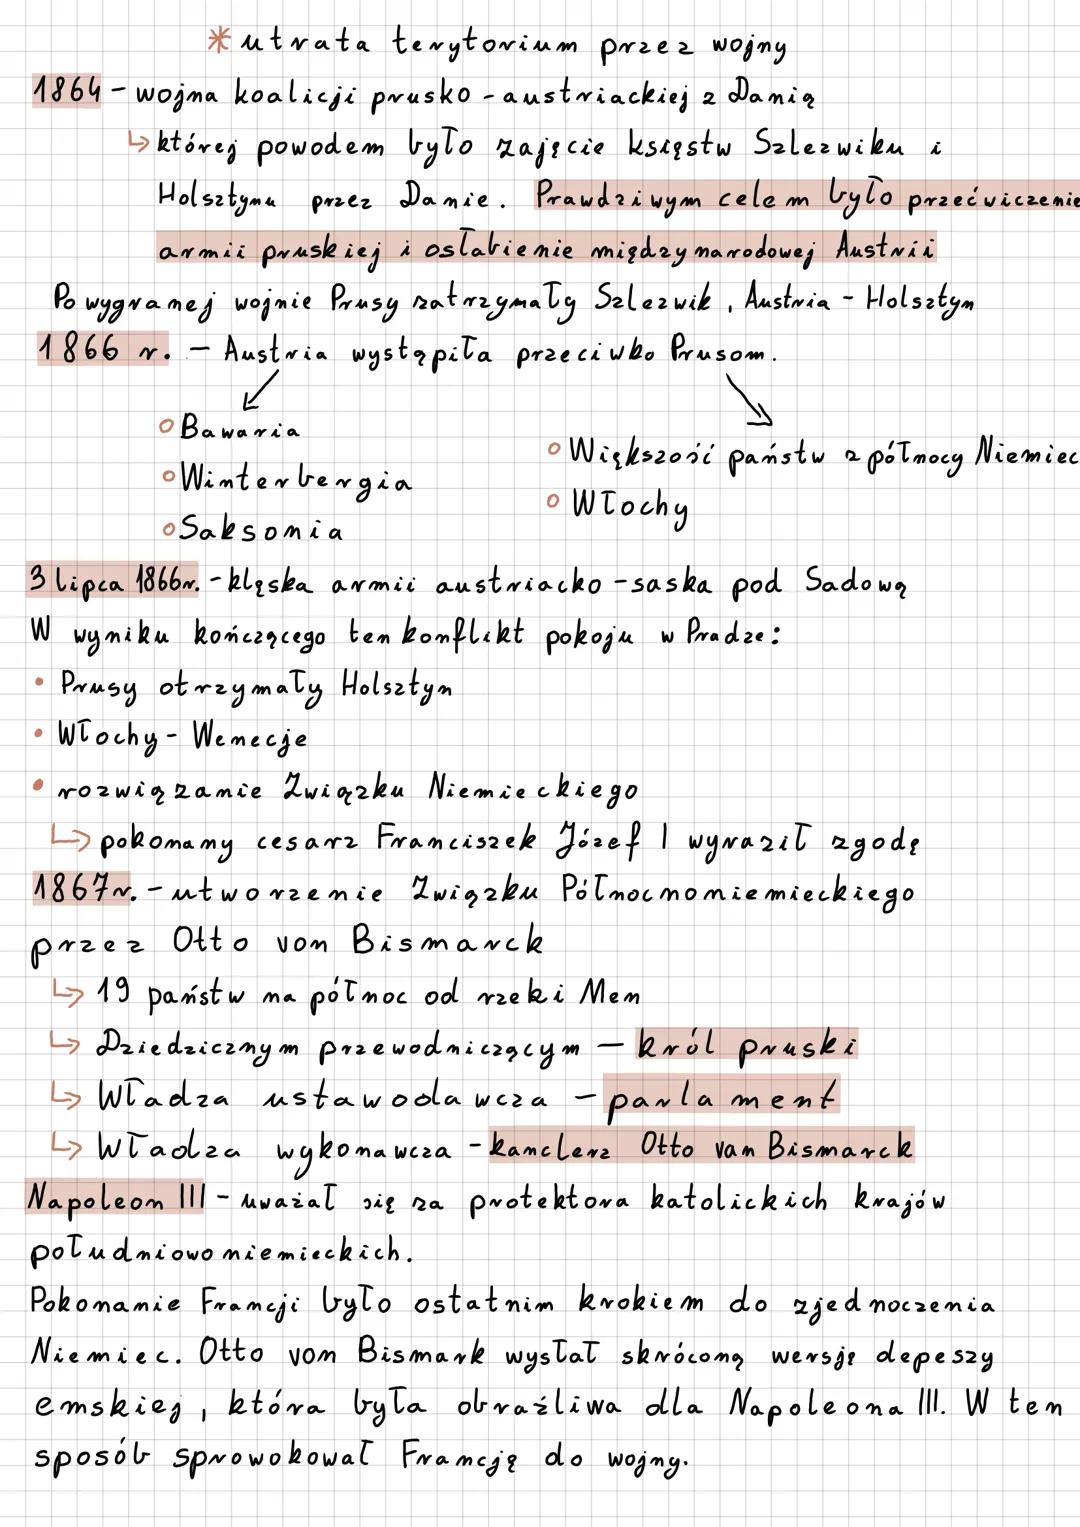 * utrata terytorium przez wojny
1864 - wojna koalicji prusko - austriackiej z Danią
↳ której powodem było zajęcie księstw Szlezwiku i
Holsztynu przez Danie. Prawdziwym celem było przećwiczenie
armii pruskiej i osłabienie międzynarodowej Austrii
Po wygranej wojnie Prusy zatrzymały Szlezwik, Austria - Holsztyn
1866 r. - Austria wystąpiła przeciwko Prusom.
Bawaria
Winterbergia
Saksonia
Większość państw z północy Niemiec
Włochy
3 lipca 1866r. - klęska armii austriacko - saska pod Sadową
W wyniku kończącego ten konflikt pokoju w Pradze:
• Prusy otrzymały Holsztyn
• Włochy - Wenecje
• rozwiązanie Związku Niemieckiego
↳ pokonany cesarz Franciszek Józef I wyraził zgodę
1867r. - utworzenie Związku Północnoniemieckiego
przez Otto von Bismarck
↳ 19 państw na północ od rzeki Men
↳ Dziedzicznym przewodniczącym - król pruski
↳ Władza ustawodawcza - parlament
↳ Władza wykonawcza - kanclerz Otto van Bismarck
Napoleon III - uważał się za protektora katolickich krajów
południowo niemieckich.
Pokonanie Francji było ostatnim krokiem do zjednoczenia
Niemiec. Otto von Bismark wysłał skróconą wersję depeszy
emskiej, która była obraźliwa dla Napoleona III. W ten
sposób sprowokował Francję do wojny.